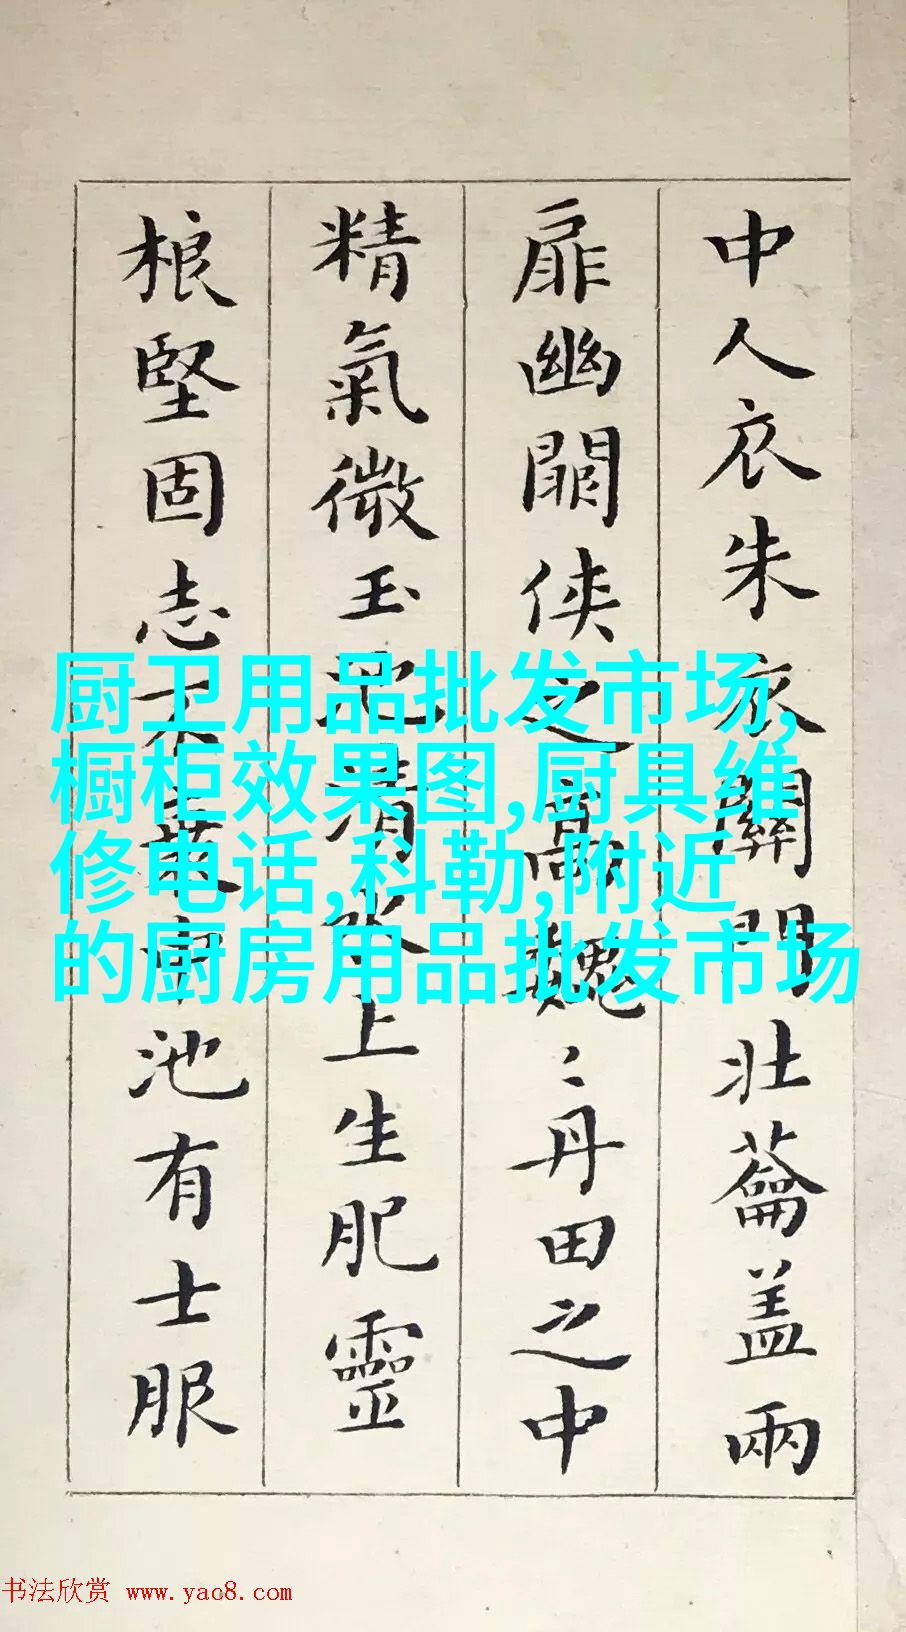 中人衣朱衣關門壯蘥盖兩
扉幽闕侠之髙魏〻丹田之中
精氣微玉池清水上生肥靈
根堅固志不衰中池有士服
厨卫用品批发市场,
橱柜效果图,厨具维
修电话,科勒,附近
的厨房用品批发市场
书法欣赏 www.yac8.com